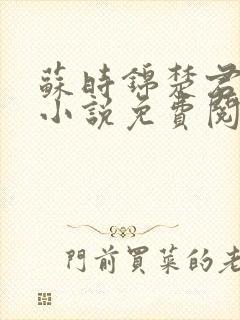 蘇時錦楚君
小說免費閱
門前買菜的老